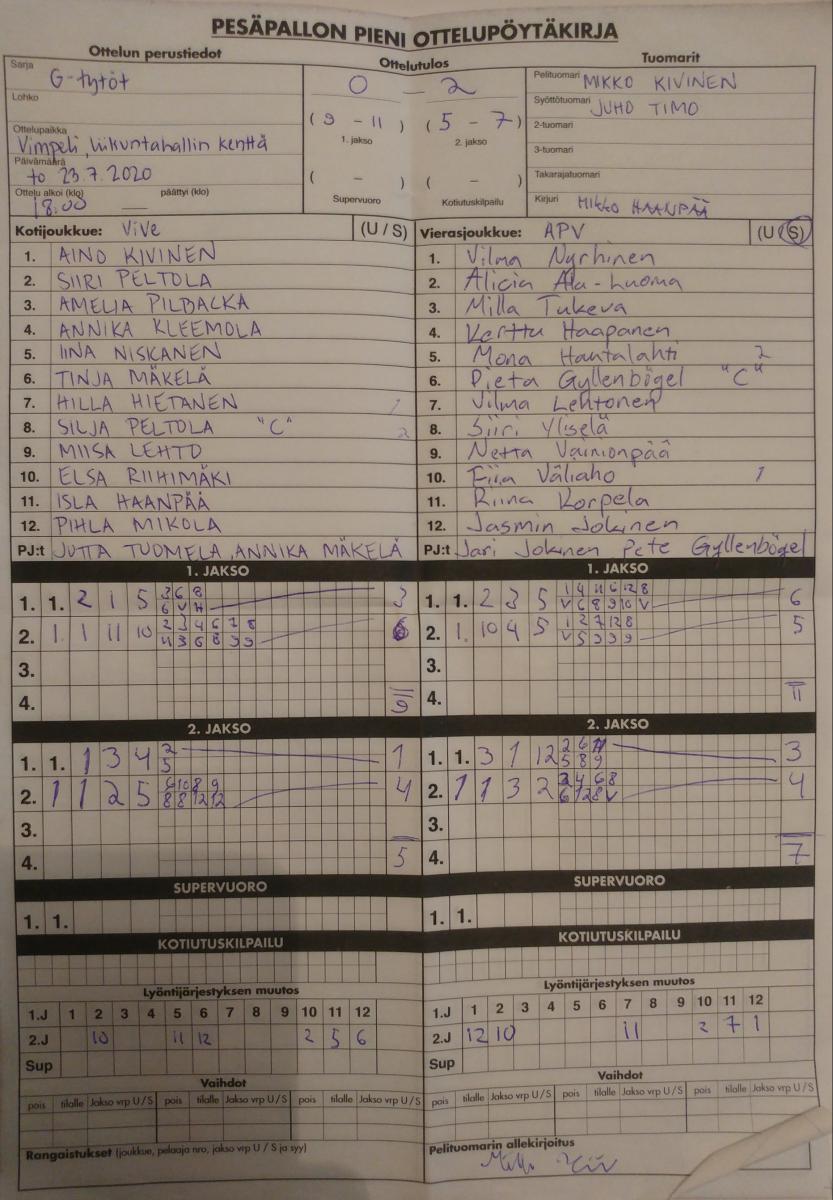 PESÄPALLON PIENI OTTELUPÖYTÄKIRJA
Ottelun perustiedot
Sarja G-tytöt
Lohko
Ottelupaikka
Vimpeli, liikuntahallin kenttä
Päivämäärä
to 23.7.2020
Ottelu alkoi (klo) päättyi (klo)
18.00 —
Ottelutulos
0 – 2
(9 – 11) (5 – 7)
1. jakso 2. jakso
( – ) ( – )
Supervuoro Kotiutuskilpailu
Tuomarit
Pelituomari MIKKO KIVINEN
Syöttötuomari JUHO TIMO
2-tuomari
3-tuomari
Takarajatuomari
Kirjuri MIKKO HAANPÄÄ
Kotijoukkue: ViVe (U / S)
1. AINO KIVINEN
2. SIIRI PELTOLA
3. AMELIA PILBACKA
4. ANNIKA KLEEMOLA
5. IINA NISKANEN
6. TINJA MÄKELÄ
7. HILLA HIETANEN 1
8. SILJA PELTOLA "C" 2
9. MIISA LEHTO
10. ELSA RIIHIMÄKI
11. ISLA HAANPÄÄ
12. PIHLA MIKOLA
PJ:t JUTTA TUOMELA, ANNIKA MÄKELÄ
Vierasjoukkue: APV (U / S)
1. Vilma Nyrhinen
2. Alicia Ala-Luoma
3. Milla Tukeva
4. Verttu Haapanen
5. Mona Hautalahti 2
6. Pieta Gyllenbögel "C"
7. Vilma Lehtonen
8. Siiri Yliselä
9. Netta Vainionpää
10. Eiia Väliaho 1
11. Riina Korpela
12. Jasmin Jokinen
PJ:t Jari Jokinen Pete Gyllenbögel
1. JAKSO
1. 1. 2 1 5 3 6 8 3
6 V H
2. 1. 1 11 10 2 3 4 6 7 8
4 3 6 8 9 9
3.
4. 9
1. JAKSO
1. 1. 2 3 5 1 4 11 6 12 8 6
V 6 8 9 10 V
2. 1. 10 4 5 1 2 7 12 8 5
V 5 9 9 9
3.
4. 11
2. JAKSO
1. 1. 1 3 4 2 1
5
2. 1 1 2 5 6 10 8 9 4
8 8 12 12
3.
4. 5
2. JAKSO
1. 1. 3 1 12 2 6 3
5 8 9
2. 1 1 3 2 4 6 8 4
6 12 8 V
3.
4. 7
SUPERVUORO
1. 1.
SUPERVUORO
1. 1.
KOTIUTUSKILPAILU
KOTIUTUSKILPAILU
Lyöntijärjestyksen muutos
1.J 1 2 3 4 5 6 7 8 9 10 11 12
2.J 10 11 12 2 5 6
Sup
Lyöntijärjestyksen muutos
1.J 1 2 3 4 5 6 7 8 9 10 11 12
2.J 12 10 11 2 7 1
Sup
Vaihdot
pois tilalle Jakso vrp U / S pois tilalle Jakso vrp U / S pois tilalle Jakso vrp U / S
Vaihdot
pois tilalle Jakso vrp U / S pois tilalle Jakso vrp U / S pois tilalle Jakso vrp U / S
Rangaistukset (joukkue, pelaaja nro, jakso vrp U / S ja syy)
Pelituomarin allekirjoitus